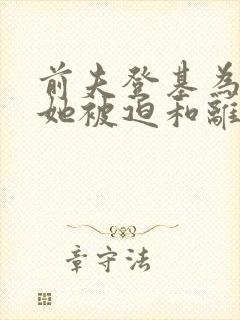 前夫登基為
她被迫和離
章守法